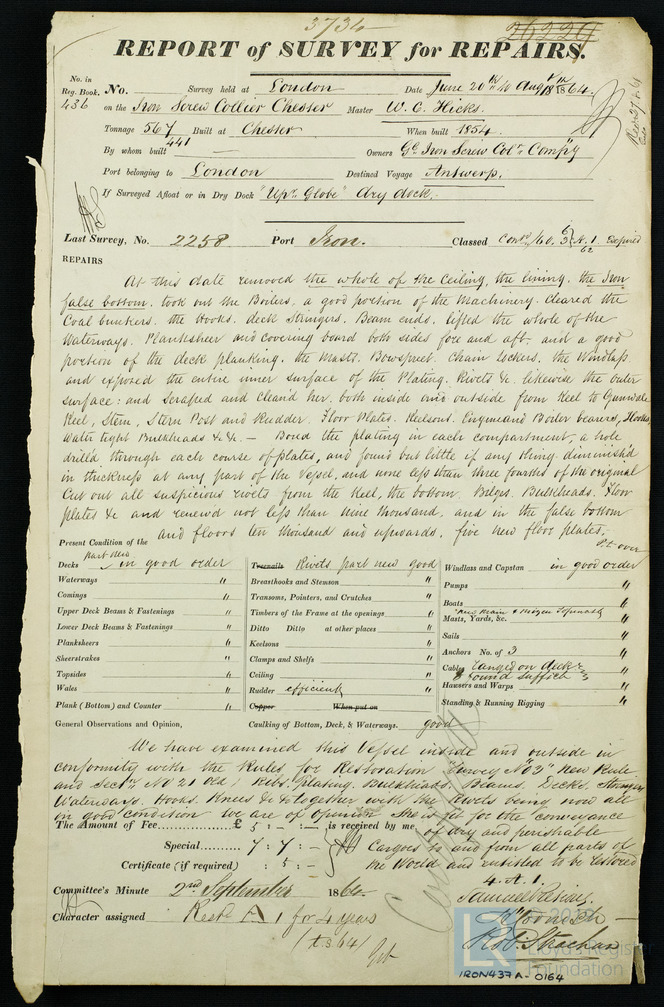 3734
26220
REPORT of SURVEY for REPAIRS.
No. in Reg. Book. 436
No. Survey held at London Date June 20th to Augt 18th 1864
on the Iron Screw Collier Chester Master W. C. Hicks.
Tonnage 567 Built at Chester When built 1854.
441
By whom built Owners Gl Iron Screw Colr Compy
Port belonging to London Destined Voyage Antwerp.
If Surveyed Afloat or in Dry Dock "Upr Globe" dry dock.
Last Survey, No. 2258 Port Iron. Classed Contd /60. 3 A. 1 Expired
62
REPAIRS
At this date removed the whole of the Ceiling, the lining. the Iron
false bottom. took out the Boilers, a good portion of the Machinery. cleared the
Coal bunkers. the hooks. deck Stringers. Beam ends. lifted the whole of the
Waterways. Planksheer and covering board both sides fore and aft. and a good
portion of the deck planking. the Masts. Bowspreet. Chain lockers. the Windlass
and exposed the entire inner surface of the Plating. Rivets &c. likewise the outer
surface: and Scraped and clean'd her both inside and outside from Keel to Gunwale
Keel, Stem, Stern Post and Rudder. Floor Plates. Keelsons. Engine and Boiler bearers, Hooks,
Water tight Bulkheads &c &c. — Bored the plating in each compartment, a hole
drill'd through each course of plates, and found but little if any thing diminish'd
in thickness at any part of the Vessel, and none less than three fourths of the original
Cut out all suspicious rivets from the Keel, the bottom. Bilges. Bulkheads. Floor
plates &c and renewd not less than nine thousand, and in the false bottom
and floors ten thousand and upwards. five new floor plates.
P.t. over
Present Condition of the
Decks part new in good order
Waterways "
Comings "
Upper Deck Beams & Fastenings "
Lower Deck Beams & Fastenings "
Planksheers "
Sheerstrakes "
Topsides "
Wales "
Plank (Bottom) and Counter "
Treenails Rivets part new good
Breasthooks and Stemson "
Transoms, Pointers, and Crutches "
Timbers of the Frame at the openings "
Ditto Ditto at other places "
Keelsons "
Clamps and Shelfs "
Ceiling "
Rudder efficient "
Copper When put on
Caulking of Bottom, Deck, & Waterways. good
Windlass and Capstan in good order
Pumps "
Boats "
new Main & Mizen Topmasts
Masts, Yards, &c. "
Sails "
Anchors No. of 3 "
Cables ranged on deck &
found suffict "
Hawsers and Warps "
Standing & Running Rigging "
General Observations and Opinion,
We have examined this Vessel inside and outside in
conformity with the Rules for Restoration "Survey No 3" New Rule
and Sectn No 21 old; Ribs. Plating. Bulkheads. Beams. Decks. Stringers
Waterways. Hooks. Knees &c &c together with the Rivets being now all
in good Condition we are of opinion She is fit for the conveyance
of dry and perishable
Cargoes to and from all parts of
the World and entitled to be restored
4. A. 1.
The Amount of Fee £ 5 : - : - is received by me
Special 7 : 7 : -
Certificate (if required) : 5 : -
Committee's Minute 2nd September 1864
Character assigned Restd A 1 for 4 years
Robt Strachan
Lloyd's Register
Foundation
IRON437A-0164